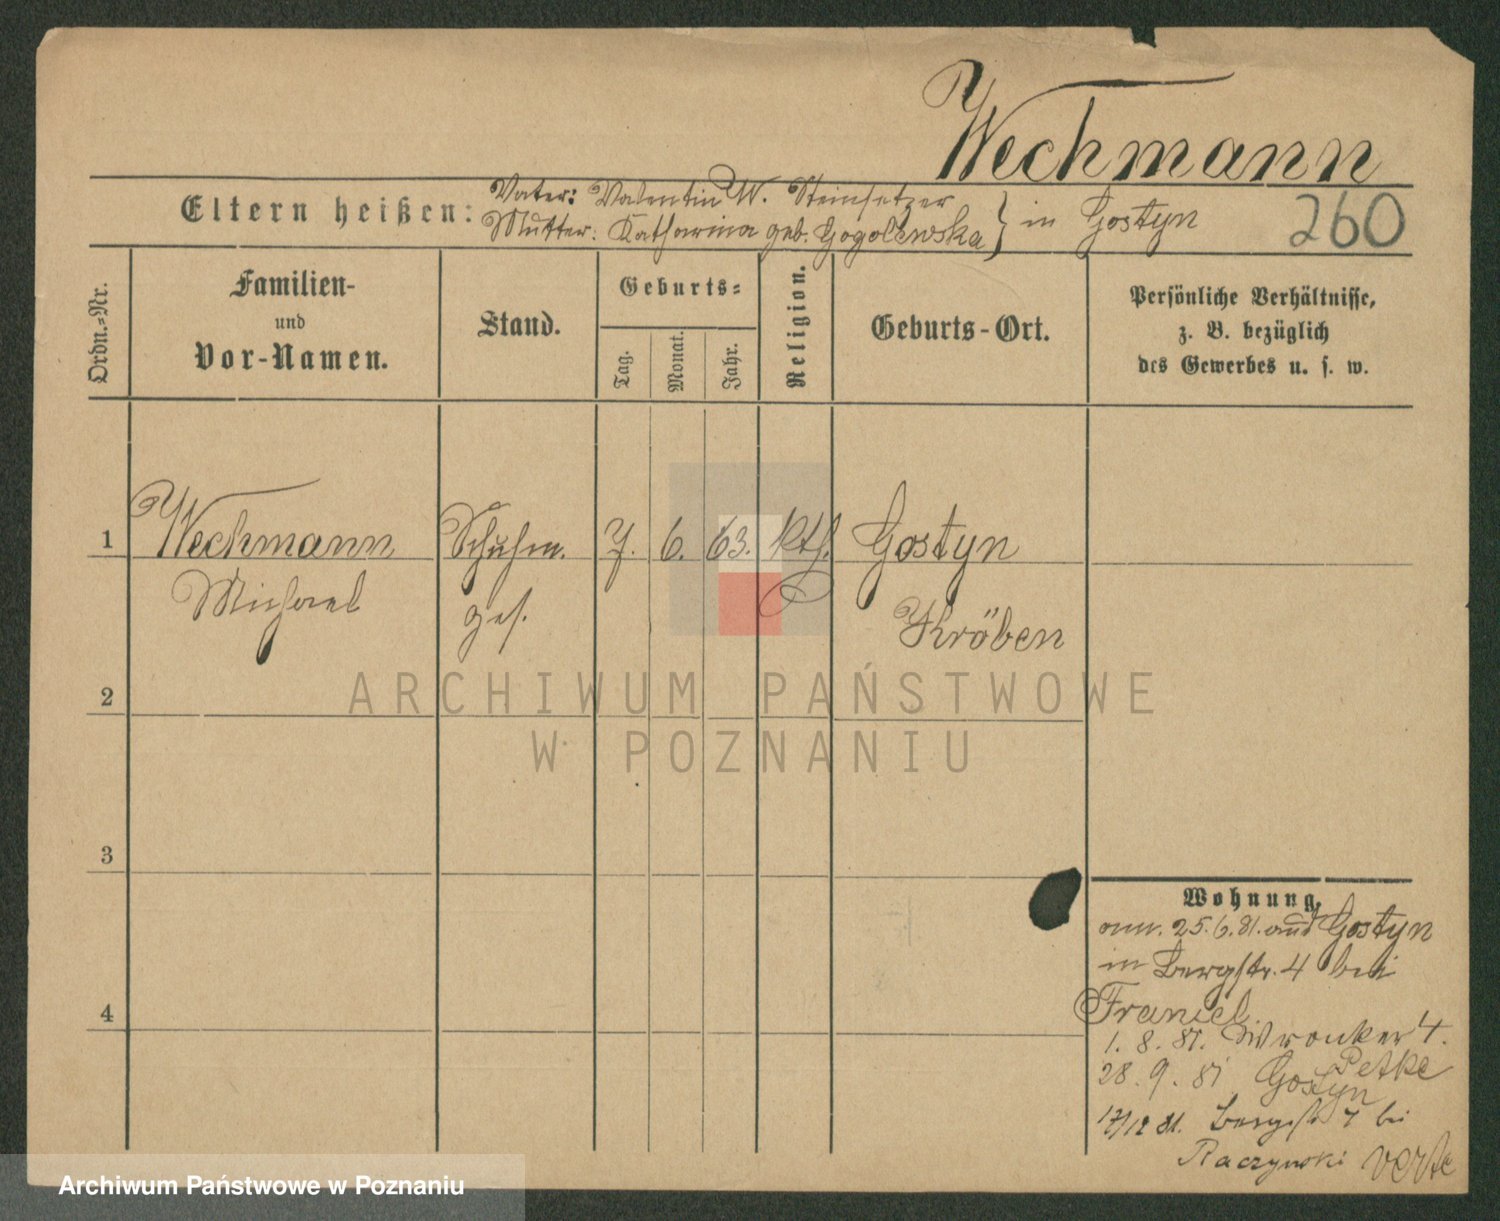 Wechmann
Eltern heißen: Vater: Valentin W. Steinsetzer
Mutter: Katharina geb. Gogolewska } in Gostyn
260
Ordn.-Nr.
Familien-
und
Vor-Namen.
Stand.
Geburts-
Tag.
Monat.
Jahr.
Religion.
Geburts-Ort.
Persönliche Verhältnisse,
z. B. bezüglich
des Gewerbes u. s. w.
1 Wechmann Schuhm. 7. 6. 63. Kth. Gostyn
Michael ges. Kröben
2
3
4
ARCHIWUM PAŃSTWOWE
W POZNANIU
Wohnung.
25. 6. 81. aus Gostyn
in Bergstr. 4 bei
Franiel.
1. 8. 81. Wronker 4.
Petke
28. 9. 81 Gostyn
17/12 81. Bergstr 7 bei
Raczynski verte
Archiwum Państwowe w Poznaniu